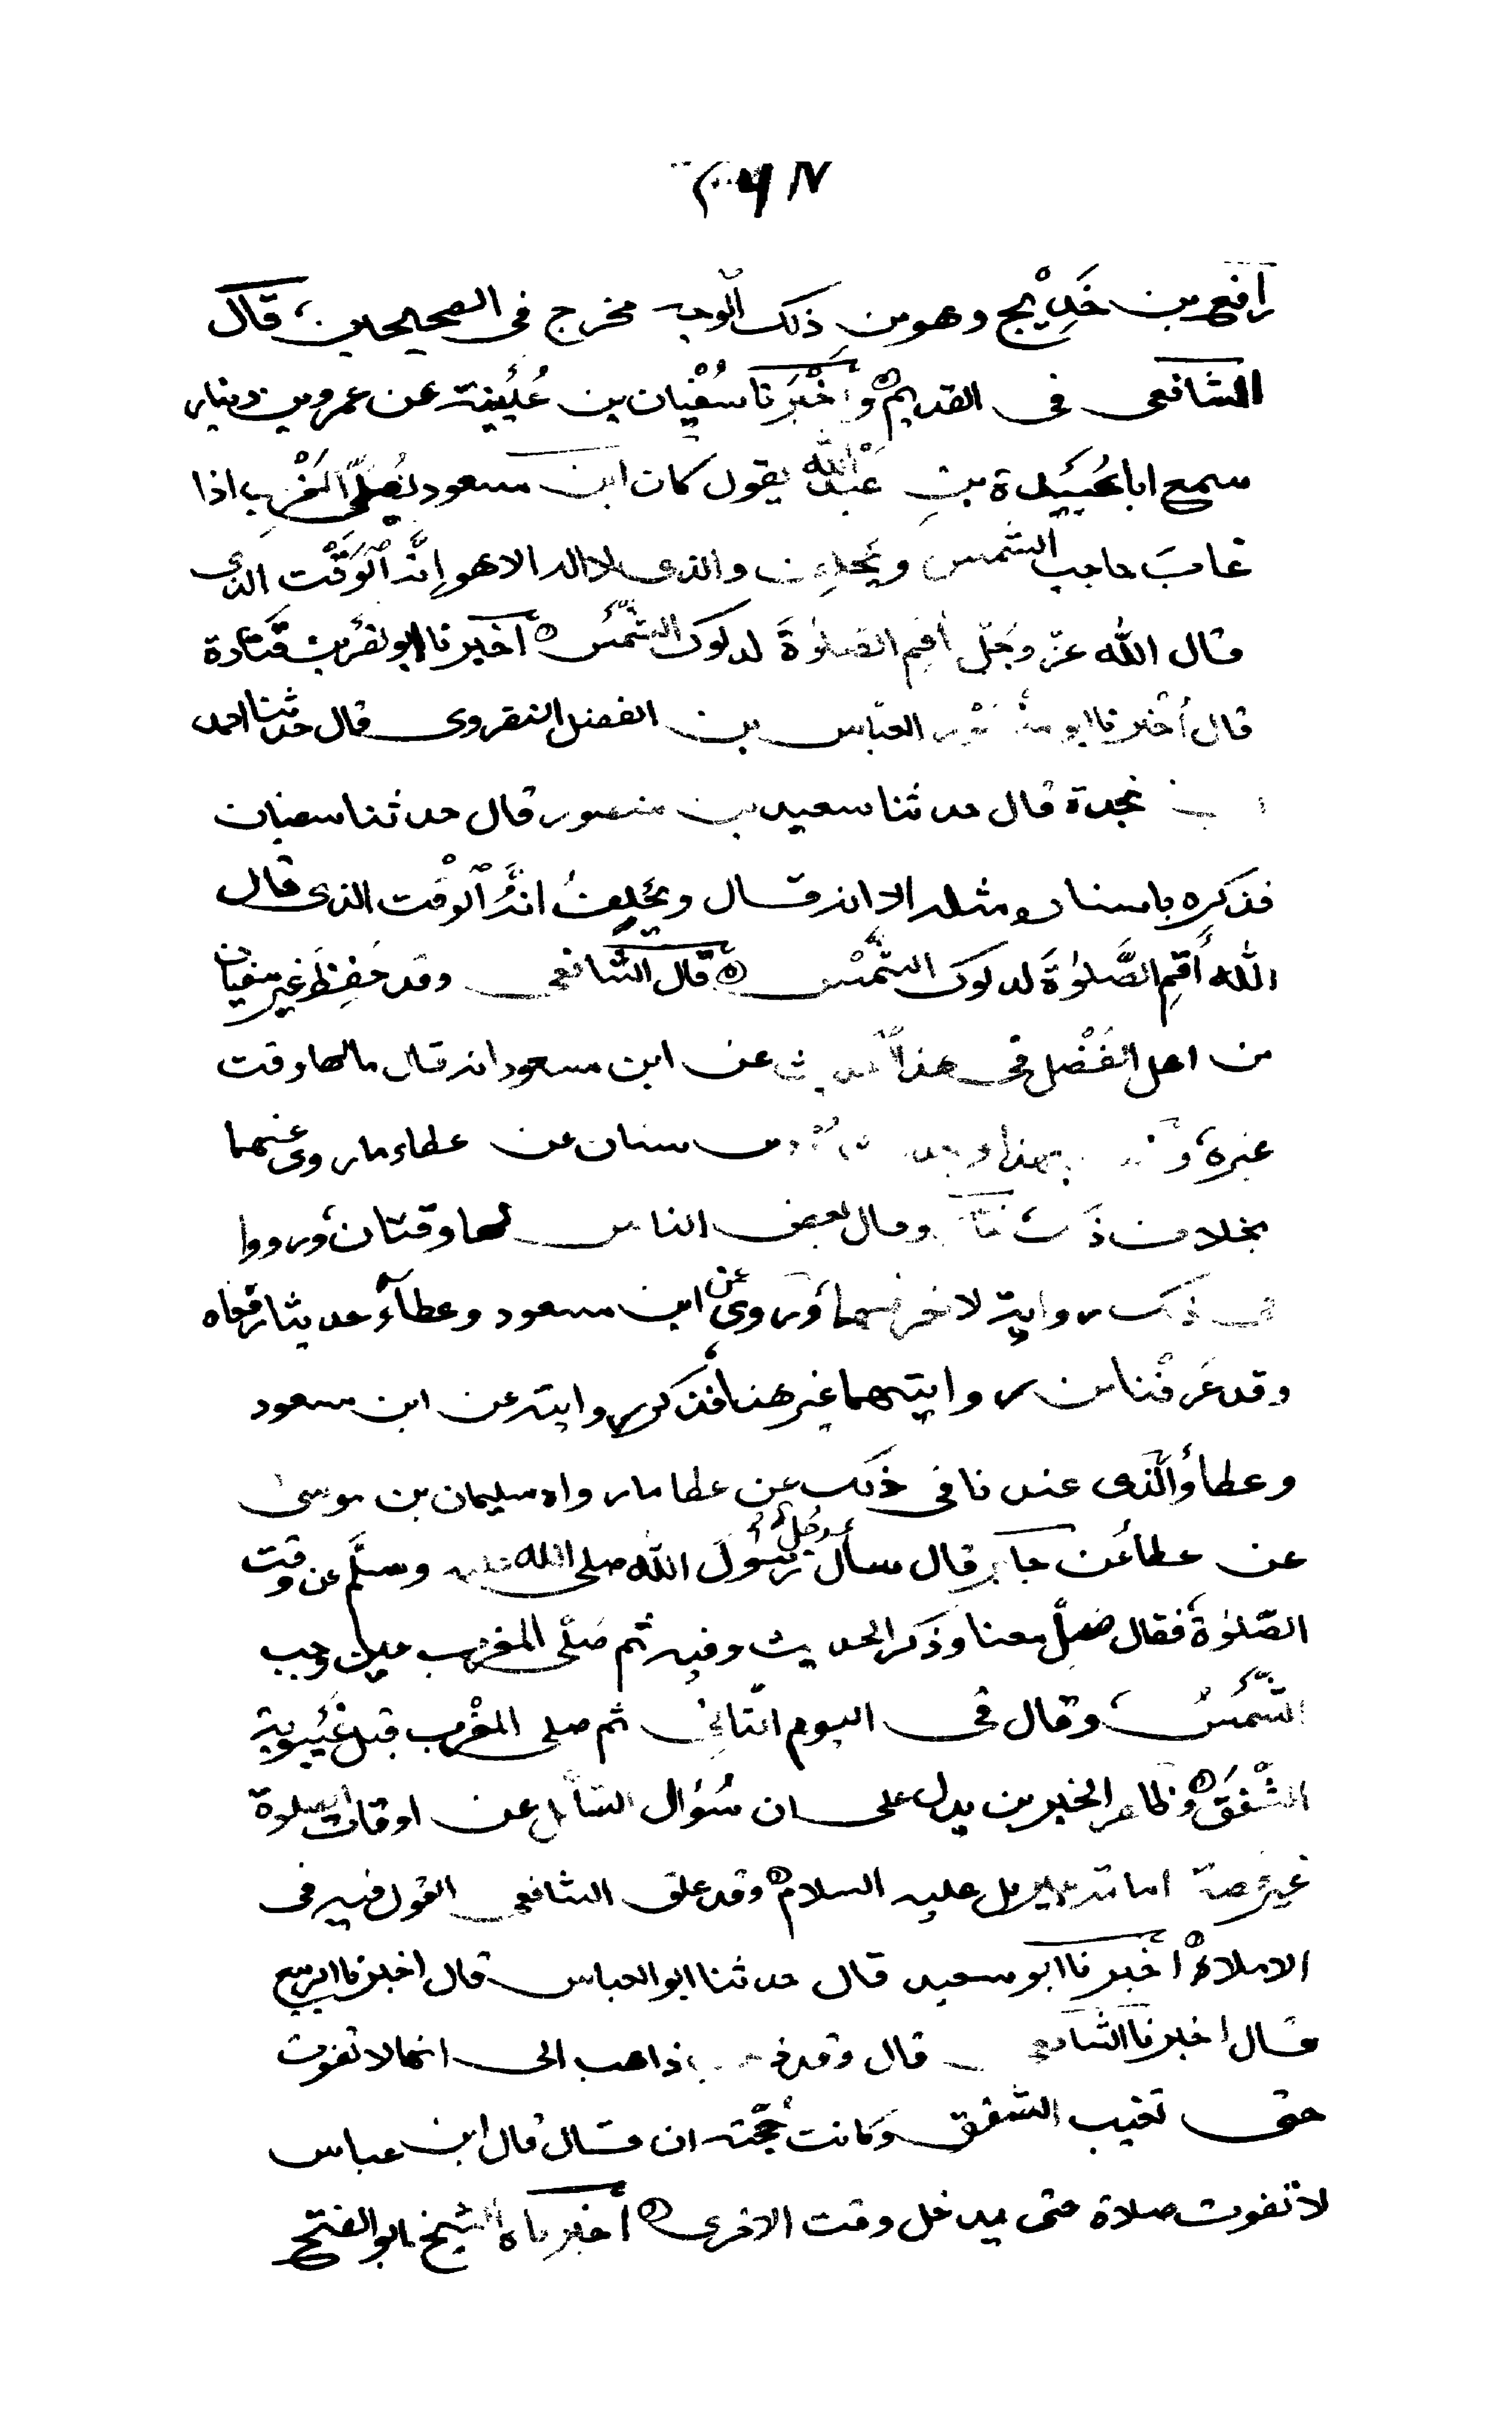 رافع بن خَدِيْج وهو من ذلك الوجه مخرج فى الصحيحين، قال
الشافعى فى القديم وأخْبَرنا سُفْيان بن عُيَيْنة عن عمرو بن دينار
سمع ابا عُبَيدة بنِ عَبْد الله يقول كان ابن مسعود يُصَلِّى المَغْرِب اذا
غابَ حاجب الشمس ويَحلِف والذى لا اله الا هو إنَّه الوَقْت الذى
قال الله عزّ وَجَلّ أقِمِ الصلوٰةَ لدلوك الشَّمْس أخبرنا ابو نصر بن قَتادة
قال أخبرنا ابو منصور العبّاس بن الفضل النضروى قال حدثنا احمد
بن نجدة قال حدثنا سعيد بن منصور قال حدثنا سفيان
فذكره باسناده مثله الا انه قال ويَحْلِفُ انَّهُ الْوقْت الذى قال
الله أَقِمِ الصَّلوٰةَ لدلوك الشَّمْس قال الشافعى وقد حَفِظَ غير سفيان
من اهل الفَضْل فى هذا الحديث عن ابن مسعود انه قال مالها وقت
غيره، و بهذا سنان عن عطاء ما روى عنهما
بخلاف وقال بعض الناس لها وقتان، ورووا
فى ذلك رواية لا خر فيهما وروى عن ابن مسعود وعطآء حديثا رفعاه
وقد عَرفْنا من روايتهما غير هذا، فذكر روايته عن ابن مسعود
وعطاء والّذى عندنا فى ذَلك عن عطا ما رواه سليمان بن موسىٰ
عن عطا عَن جابر قال سأل رجلٌ رَسُولَ الله صلى الله عليه وسلَّم عن وقت
الصّلوٰة فقال صَلِّ معنا وذكر الحديث وفيه ثم صَلّى المغرب حين وجب
الشَّمْسُ، وقال فى اليوم الثّانى ثم صلى المغْرب قبل غَيْبوبة
الشَّفَق وظاهر الخبرين يدل على ان سُؤال السَّائل عن اوقات الصلوة
غير قصة امامة جبريل عليه السلام وقد علق الشافعى القول فيه فى
الاملاء أخبرنا ابو سعيد قال حدثنا ابو العباس قال اخبرنا الربيع
قال اخبرنا الشافعى قال وقد ذهب ذاهب الى انها لا تفوت
حتى تغيب الشفق وكانت حُجّته ان قال قال ابن عباس
لا تفوت صلاة حتى يدخل وقت الاخرى أخبرناه الشيخ ابو الفتح